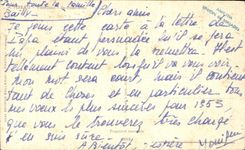 Pour toute la famille
Bailly - Chers amis
Je joins cette carte à la lettre de
Lola étant persuadée qu'il se fera
un plaisir de vous la remettre. Il est
tellement content lorsqu'il va vous voir.
Mon mot sera court, mais il contient
tant de choses et en particulier tous
mes voeux les plus sincères pour 1953
que vous le trouverez très chargé
j'en suis sûre.
A Bientôt - Monique